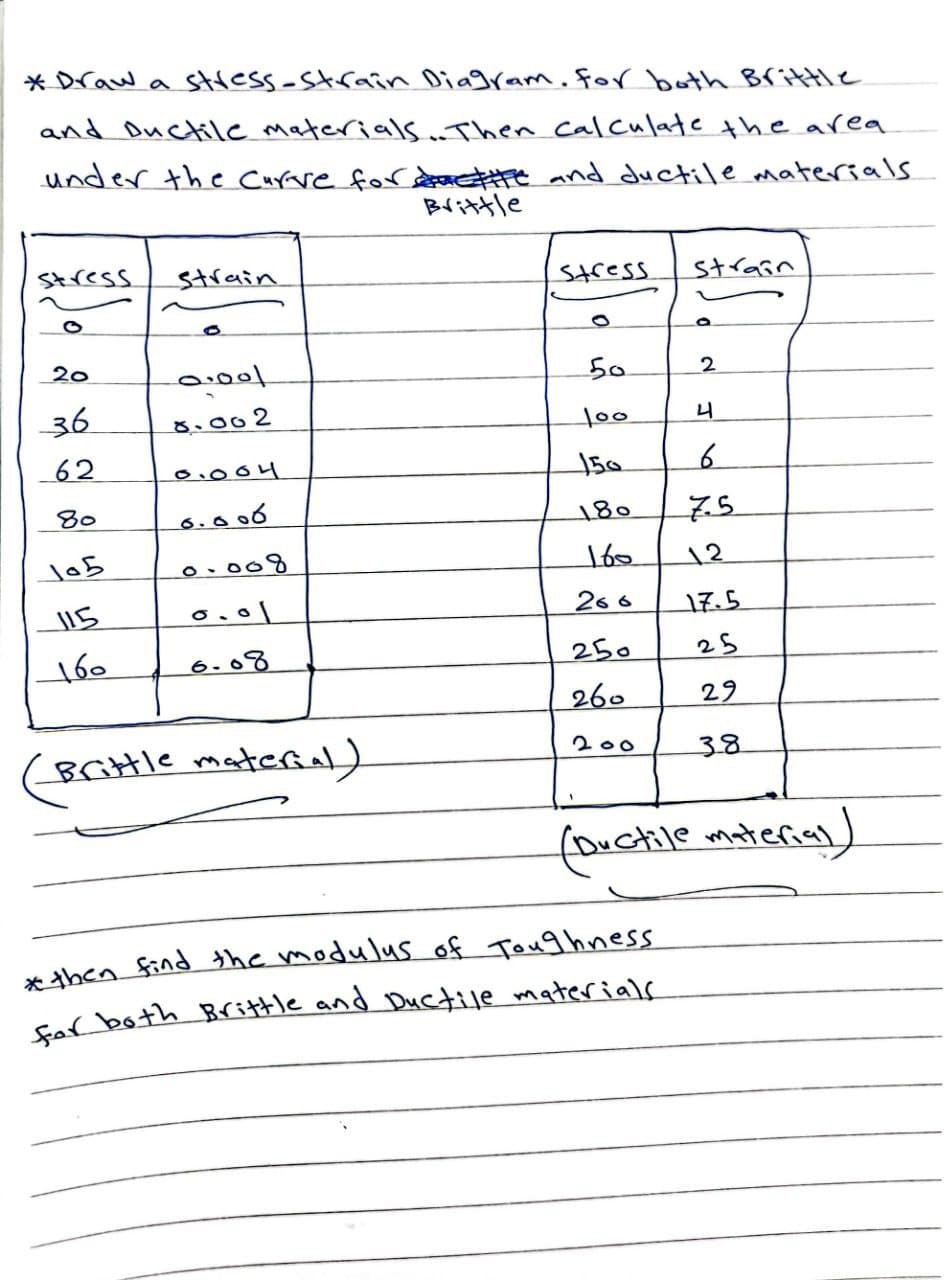 * Draw a stress-strain Diagram. for both Brittle
and Ductile materials.. Then calculate the area
under the curve for and ductile materials
Brittle
stress strain
0 0
20 0.001
36 0.002
62 0.004
80 0.006
105 0.008
115 0.01
160 0.08
(Brittle material)
stress strain
0 0
50 2
100 4
150 6
180 7.5
160 12
200 17.5
250 25
260 29
200 38
(Ductile material)
* then find the modulus of Toughness
for both Brittle and Ductile materials